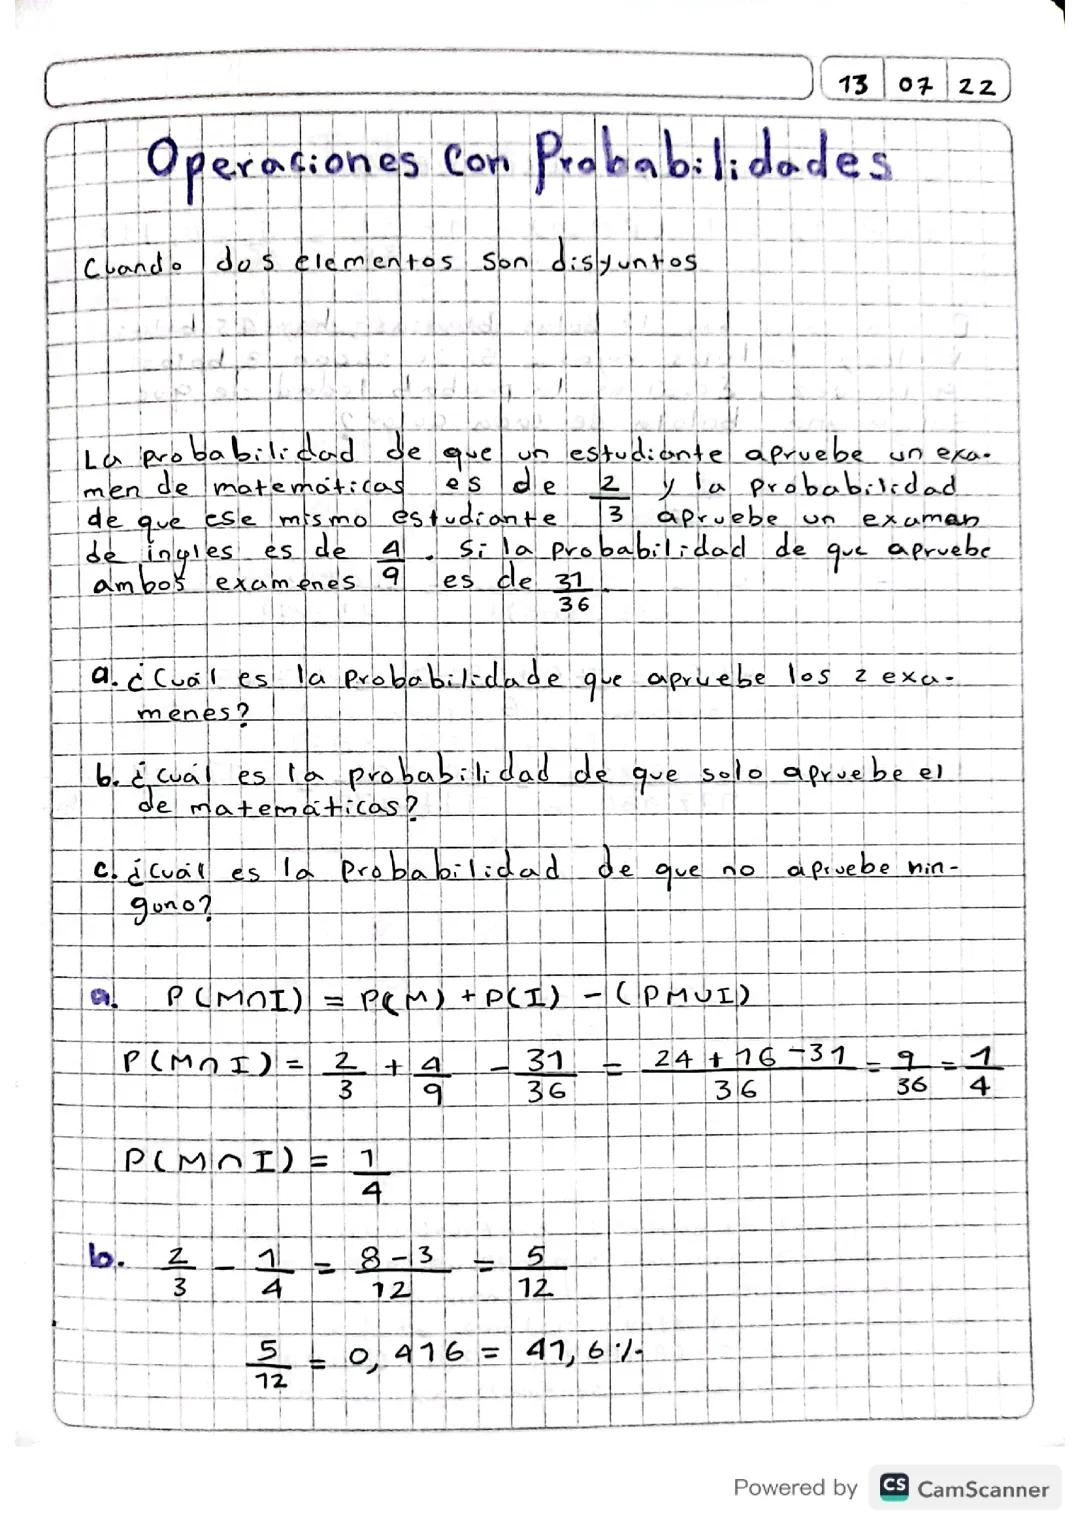 13 07 22
Operaciones con Probabilidades
Cuando dos elementos son disyuntos
La probabilidad de que un estudiante apruebe un exa-
men de matemáticas es de 2/3 y la probabilidad
de que ese mismo estudiante apruebe un examen
de ingles es de 4/9. Si la probabilidad de que apruebe
ambos examenes es de 31/36.
a. ¿Cuál es la probabilidade que apruebe los 2 exa-
menes?
b. ¿cuál es la probabilidad de que solo apruebe el
de matemáticas?
c. ¿Cuál es la probabilidad de que no apruebe nin-
guno?
a. P(M∩I) = P(M) + P(I) - (PM∪I)
P(M∩I) = 2/3 + 4/9 - 31/36 = 24 + 16 - 31/36 = 9/36 = 1/4
P(M∩I) = 1/4
b. 2/3 - 1/4 = 8 - 3/12 = 5/12
5/12 = 0,416 = 41,6 %
Powered by CS CamScanner